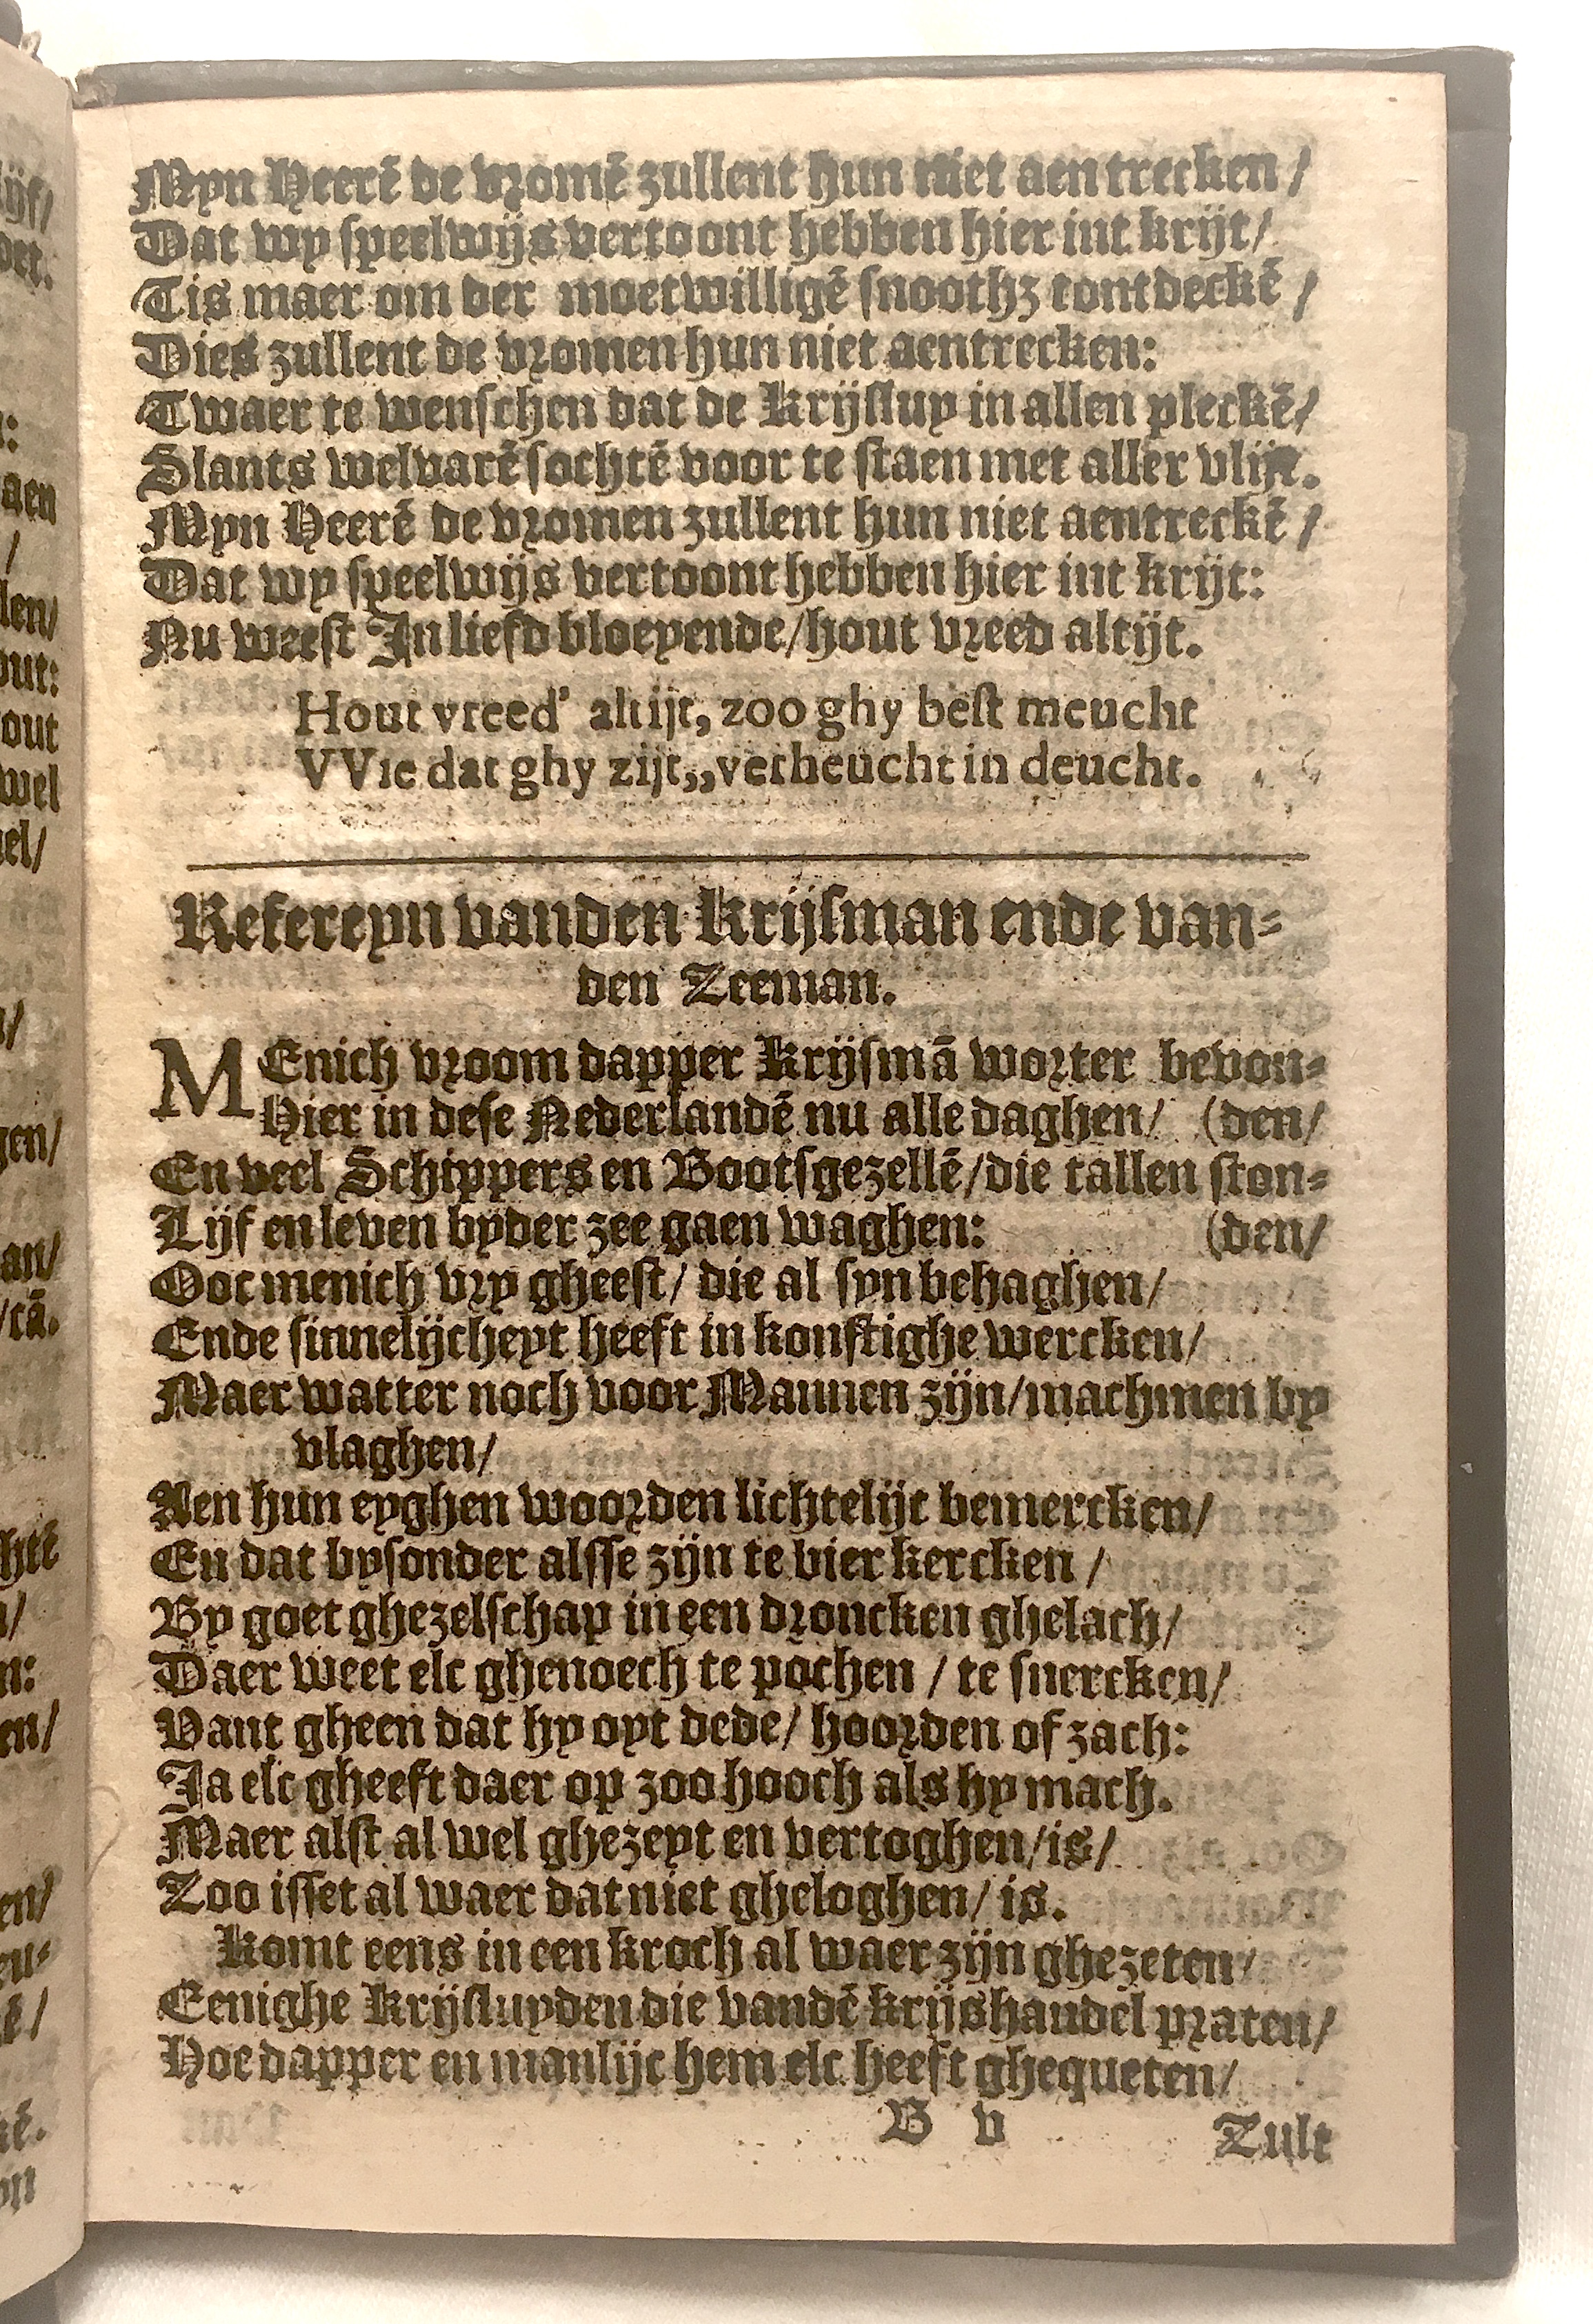 Myn Heerē de vromē zullent hun niet aentrecken/
Dat wy speelwijs vertoont hebben hier int krijt/
Tis maer om der moetwilligē snooth&#x292; tontdeckē/
Dies zullent de vromen hun niet aentrecken:
Twaer te wenschen dat de Krijsluy in allen pleckē/
Slants welvarē sochtē voor te staen met aller vlijt.
Myn Heerē de vromen zullent hun niet aentreckē/
Dat wy speelwijs vertoont hebben hier int krijt:
Nu weest In liefd bloeyende/hout vreed altijt.
Hout vreed' altijt, zoo ghy best meucht
VVie dat ghy zijt,,,verheucht in deucht.
Refereyn vanden Krijsman ende van-
den Zeeman.
MEnich vroom dapper Krijsmā worter bevon-
Hier in dese Nederlandē nu alle daghen/ (den/
En veel Schippers en Bootsgezellē/die tallen ston-
Lijf en leven byder zee gaen waghen: (den/
Ooc menich vry gheest/ die al syn behaghen/
Ende sinnelijcheyt heeft in konstighe wercken/
Maer watter noch voor Mannen zijn/machmen by
vlaghen/
Aen hun eyghen woorden lichtelijc bemercken/
En dat bysonder alsse zijn te bier kercken/
By goet ghezelschap in een droncken ghelach/
Daer weet elc ghenoech te pochen/ te snercken/
Vant gheen dat hy oyt dede/ hoorden of zach:
Ja elc gheeft daer op zoo hooch als hy mach.
Maer alst al wel ghezeyt en vertoghen/is/
Zoo isset al waer dat niet gheloghen/ is.
Komt eens in een kroch al waer zijn ghezeten/
Eenighe Krijsluyden die vandē krijshandel praten/
Hoe dapper en manlijc hem elc heeft ghequeten/
B v
Zult